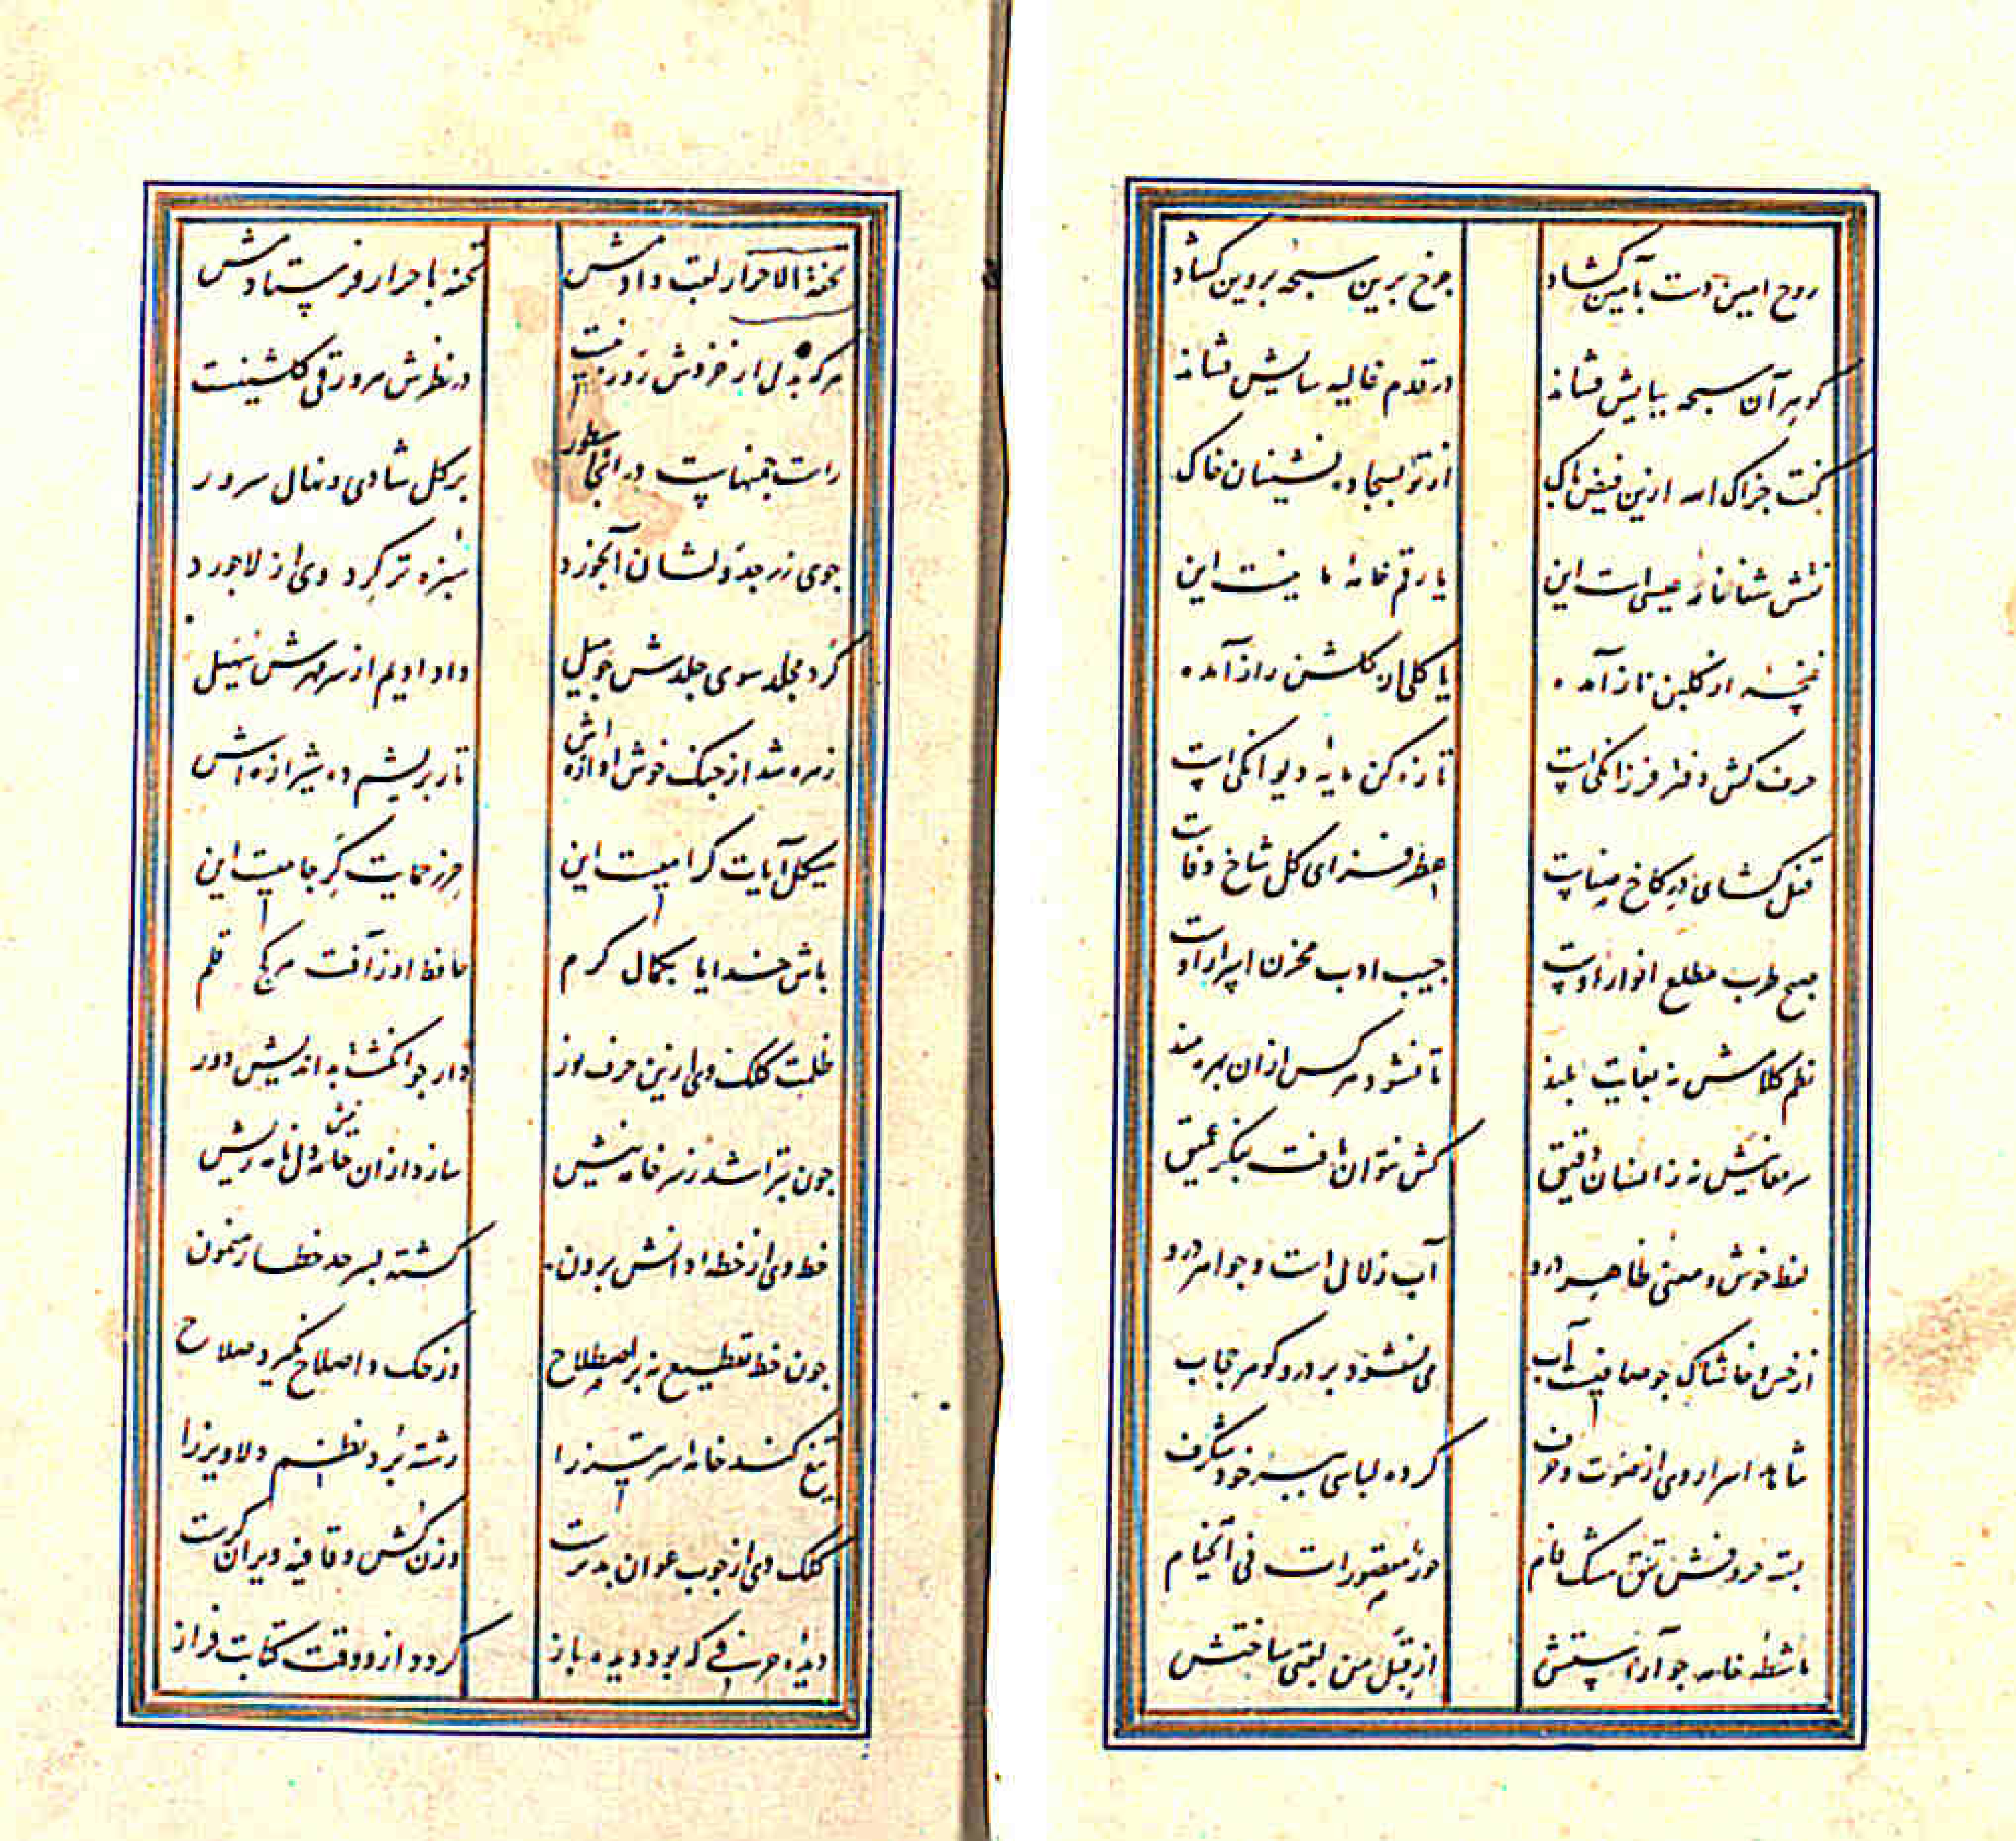 روح امین دست بآمین کشاد	چرخ برین سبحه پروین کشاد
گوهر آن سبحه بپایش فشاند	در قدم غالیه سایش فشاند
گفت جزاک الله ازین فیض پاک	از تو بسجاده نشینان خاک
نقش شفانامه عیسی است این	یا رقم خامه مانیست این
غنچه از گلبن ناز آمده	یا گلی از گلشن راز آمده
حرف کش دفتر فرزانگی است	تازه کن مایه دیوانگی است
قفل کشای در کاخ صفاست	عطر فزای گل شاخ وفاست
صبح طرب مطلع انوار اوست	جیب ادب مخزن اسرار اوست
نظم کلامش نه بغایت بلند	تا نشود هر کس ازان بهره مند
سر معانیش نه زانسان دقیق	کش نتوان یافت بفکر عمیق
لفظ خوش و معنی ظاهر درو	آب زلال است و جواهر درو
از خس و خاشاک چو صافیست آب	می نشود بر در و گوهر حجاب
شاهد اسرار وی از صوت و حرف	کرده لباسی ببر خود شگرف
بسته حروفش تتق مشک فام	حور مقصورات فی الخیام
ماشطه خامه چو آراستش	از قبل من لقبی ساختش
تحفة الاحرار لقب دادمش	تحفه باحرار فرستادمش
هر که بدل از خردش روزنیست	در نظرش هر ورقی گلشنیست
راست چمنهاست در آنجا سطور	بر گل شادی و نهال سرور
جوی زر جدولشان آبخورد	سبزه تر گرد وی از لاجورد
کرد مجلد سوی جلدش چو میل	داد ادیم از سر مهرش سهیل
زهره شد از چنگ خوش آوازه اش	تار بریشم ده شیرازه اش
هیکل آیات کرامیست این	حرز حمایت گر جامیست این
باش خدایا بکمال کرم	حافظ او ز آفت هر کج قلم
ظلمت کلک وی ازین حرف نور	دار چو انگشت بداندیش دور
چون بتراشد ز سر خامه نیش	سازد ازان خامه دل نامه ریش
خط وی از خطه دانش برون	گشته بسرحد خطا رهنمون
چون خط تقطیع نه بر اصطلاح	وز حک و اصلاح نگیرد صلاح
تیغ کند خامه سرتیز را	رشته برد نظم دلاویز را
کلک وی از چوب عوان بدترست	وزن کش و قافیه ویران گرست
دیده حرفی که بود دیده باز	گردد ازو وقت کتابت فراز